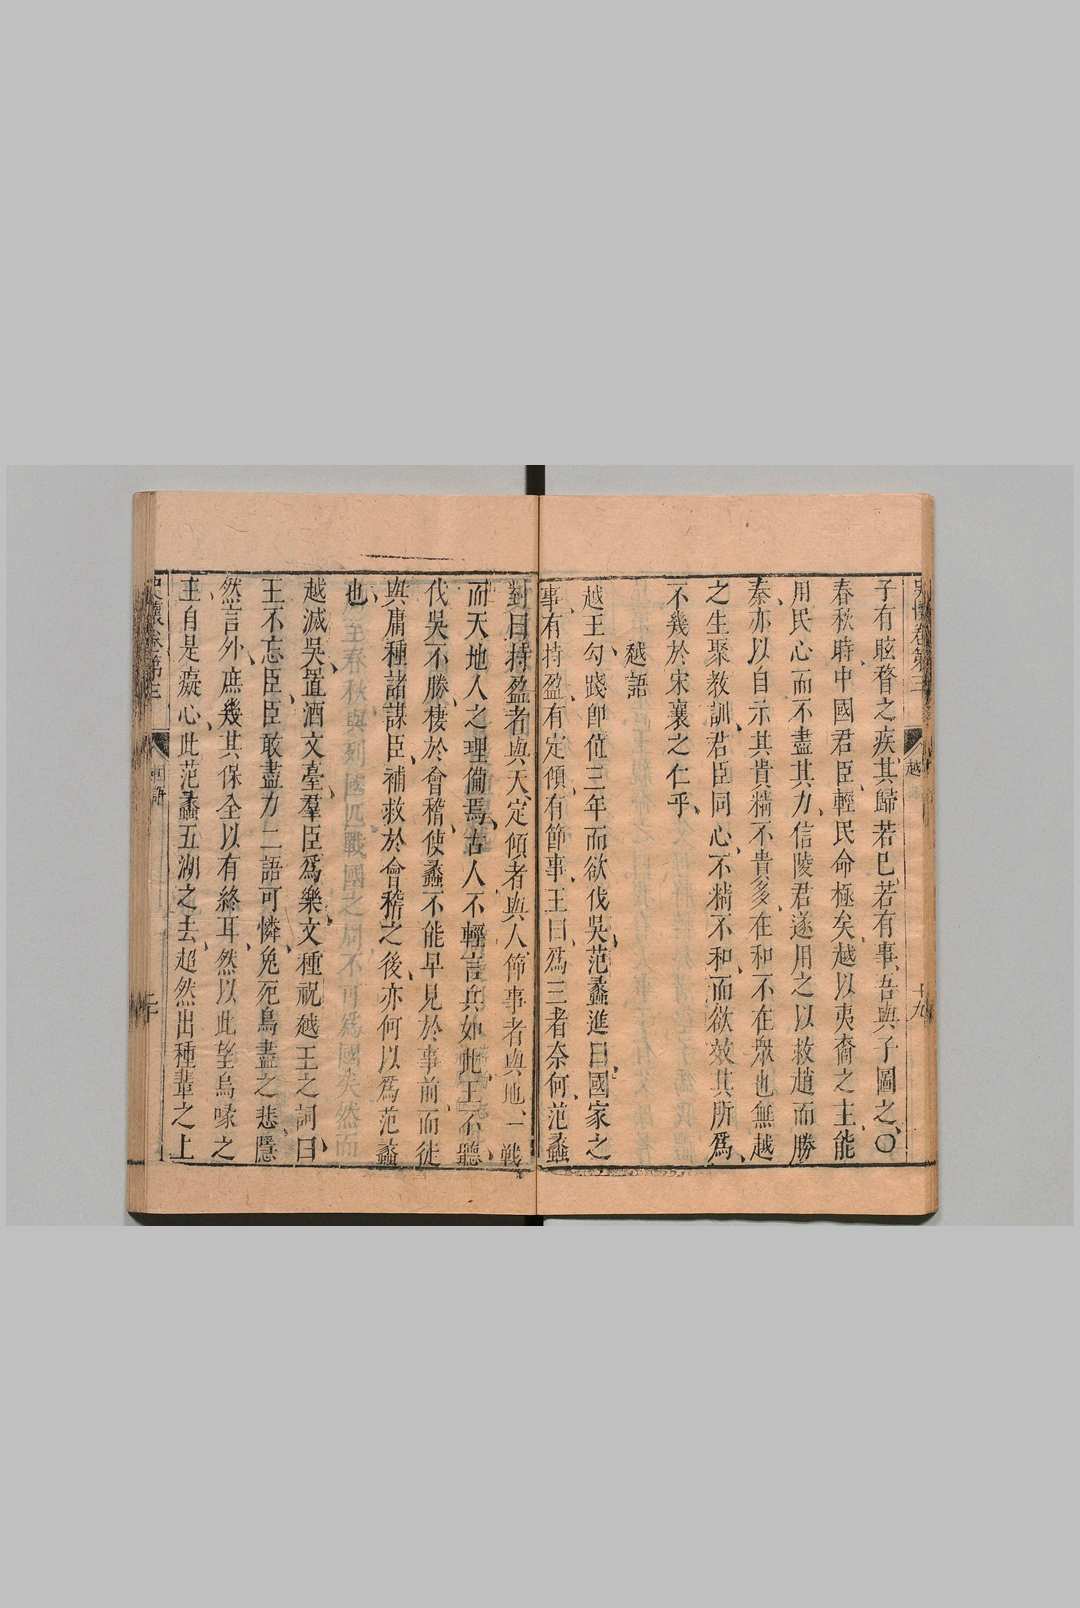 史懷卷第三 越 十九
子有眩瞀之疾、其歸若已、若有事、吾與子圖之、〇
春秋時、中國君臣、輕民命極矣、越以夷裔之主、能
用民心、而不盡其力、信陵君遂用之以救趙而勝
秦、亦以自示其貴精不貴多、在和不在衆也、無越
之生聚教訓、君臣同心、不精不和、而欲效其所爲、
不幾於宋襄之仁乎、
越語
越王勾踐卽位三年而欲伐吳、范蠡進曰、國家之
事、有持盈、有定傾、有節事、王曰、爲三者奈何、范蠡
對曰、持盈者與天、定傾者與人、節事者與地、一戰
而天地人之理備焉、古人不輕言兵如此、王不聽、
伐吳不勝、棲於會稽、使蠡不能早見於事前、而徒
與庸種諸謀臣、補救於會稽之後、亦何以爲范蠡
也、
越滅吳、置酒文臺、羣臣爲樂、文種祝越王之詞曰、
王不忘臣、臣敢盡力、二語可憐、兔死鳥盡之悲、隱
然言外、庶幾其保全以有終耳、然以此望烏喙之
主、自是癡心、此范蠡五湖之去、超然出種輩之上
史懷卷第三 國語 二十